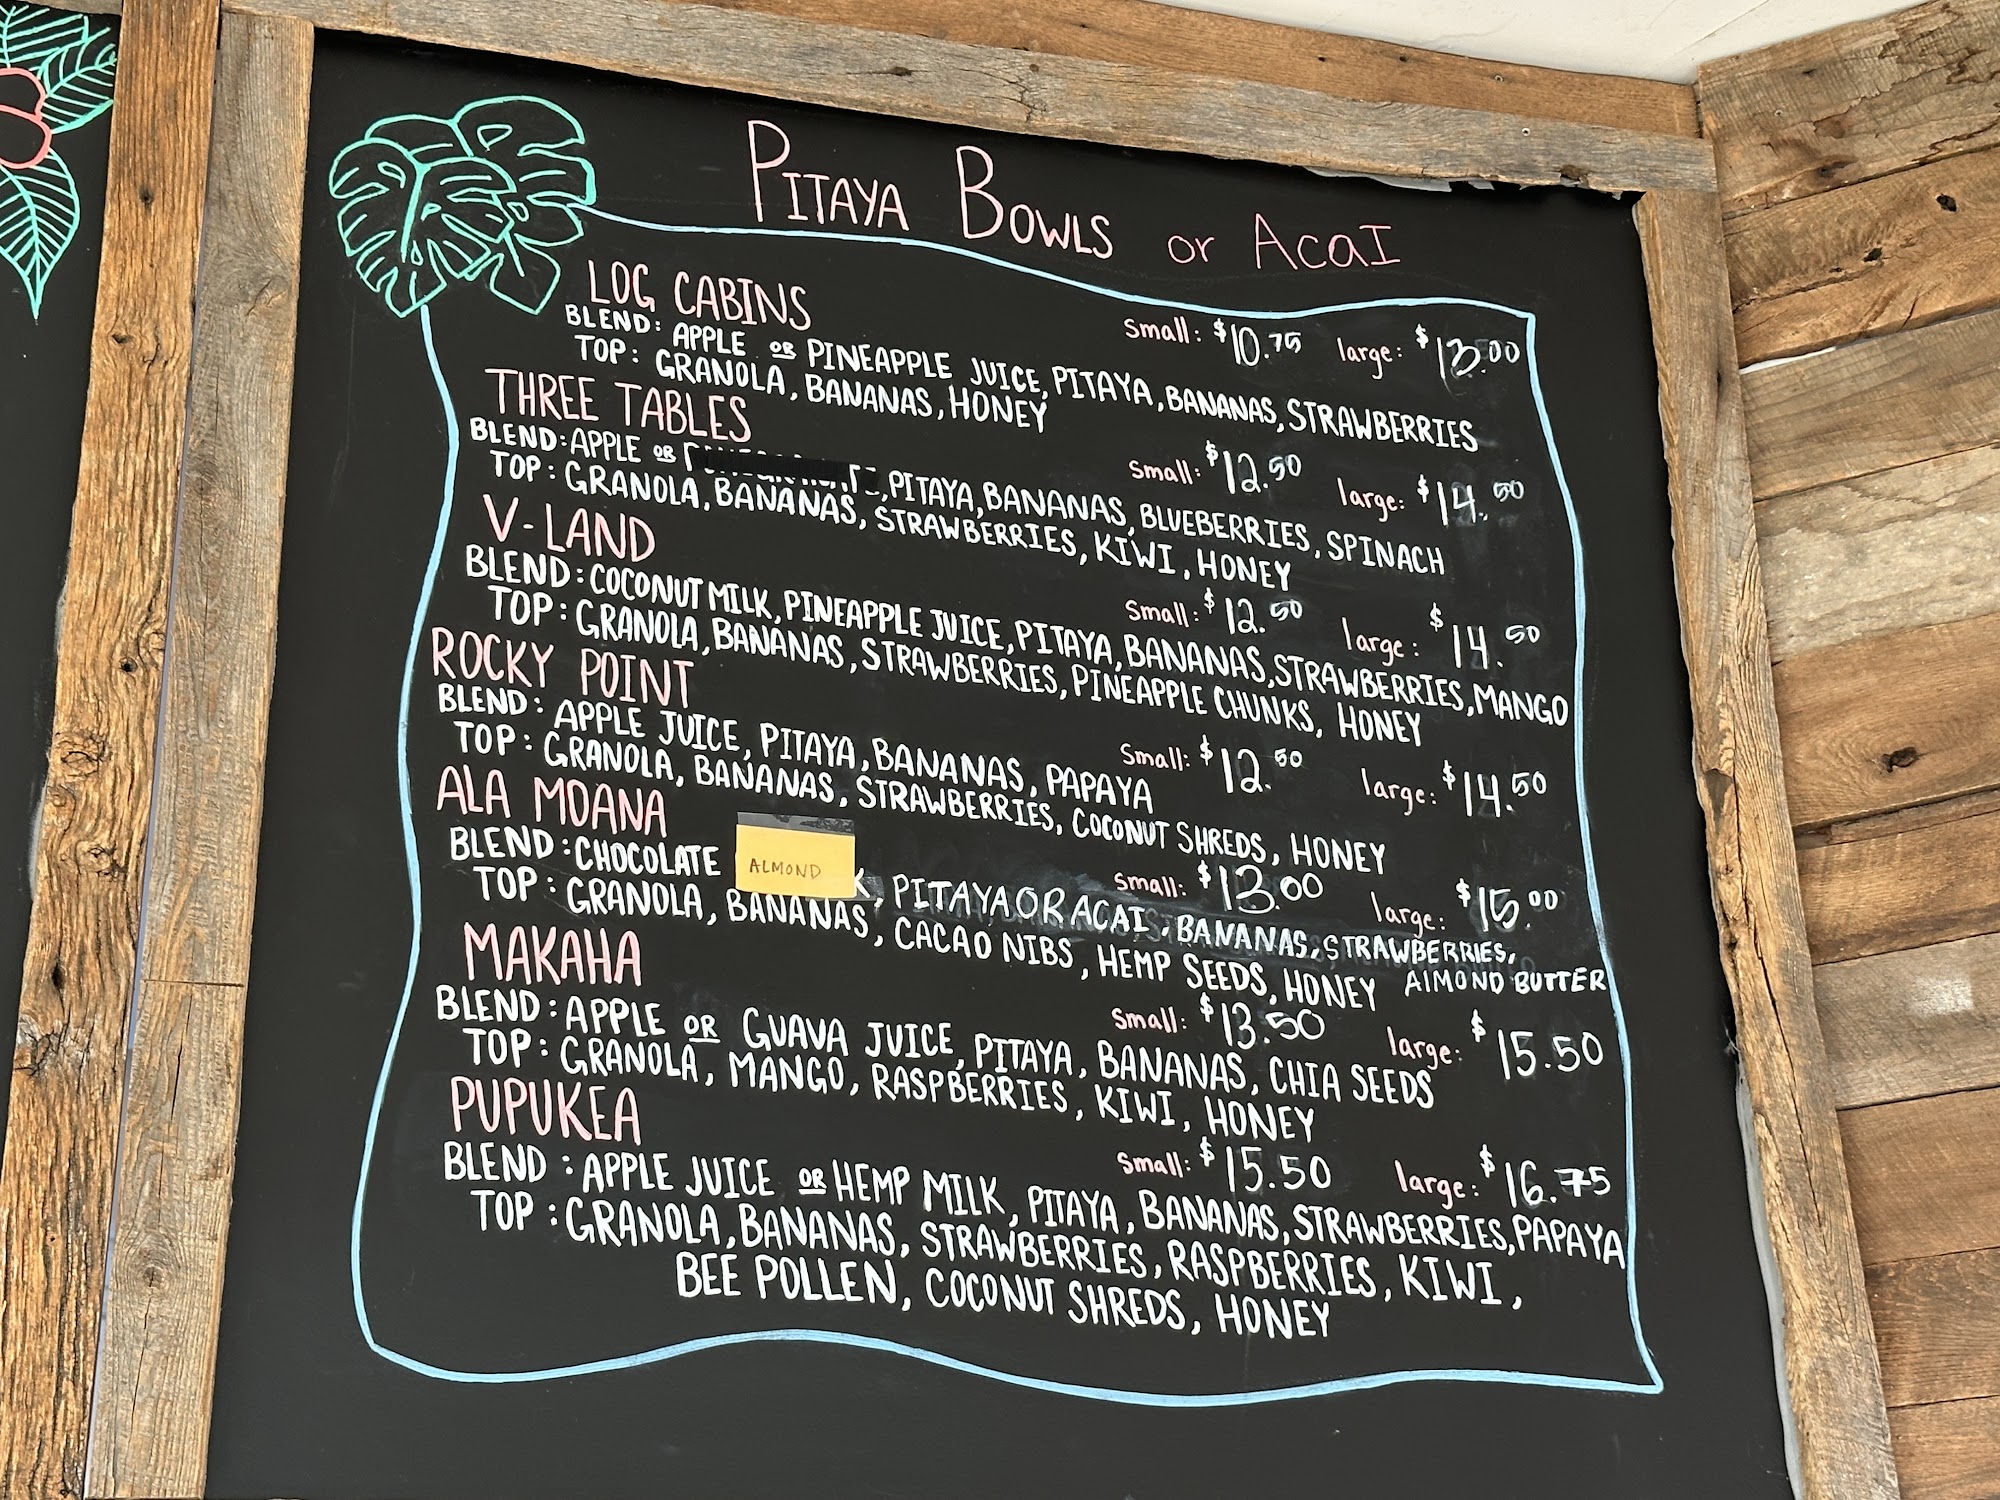 PITAYA BOWLS or ACAI
LOG CABINS
small: $10.75 large: $13.00
BLEND: APPLE OR PINEAPPLE JUICE, PITAYA, BANANAS, STRAWBERRIES
TOP: GRANOLA, BANANAS, HONEY
THREE TABLES
small: $12.50 large: $14.50
BLEND: APPLE OR , PITAYA, BANANAS, BLUEBERRIES, SPINACH
TOP: GRANOLA, BANANAS, STRAWBERRIES, KIWI, HONEY
V-LAND
small: $12.50 large: $14.50
BLEND: COCONUT MILK, PINEAPPLE JUICE, PITAYA, BANANAS, STRAWBERRIES, MANGO
TOP: GRANOLA, BANANAS, STRAWBERRIES, PINEAPPLE CHUNKS, HONEY
ROCKY POINT
small: $12.50 large: $14.50
BLEND: APPLE JUICE, PITAYA, BANANAS, PAPAYA
TOP: GRANOLA, BANANAS, STRAWBERRIES, COCONUT SHREDS, HONEY
ALA MOANA
small: $13.00 large: $15.00
BLEND: CHOCOLATE ALMOND K, PITAYA OR ACAI, BANANAS, STRAWBERRIES,
ALMOND BUTTER
TOP: GRANOLA, BANANAS, CACAO NIBS, HEMP SEEDS, HONEY
MAKAHA
small: $13.50 large: $15.50
BLEND: APPLE OR GUAVA JUICE, PITAYA, BANANAS, CHIA SEEDS
TOP: GRANOLA, MANGO, RASPBERRIES, KIWI, HONEY
PUPUKEA
small: $15.50 large: $16.75
BLEND: APPLE JUICE OR HEMP MILK, PITAYA, BANANAS, STRAWBERRIES, PAPAYA
TOP: GRANOLA, BANANAS, STRAWBERRIES, RASPBERRIES, KIWI,
BEE POLLEN, COCONUT SHREDS, HONEY